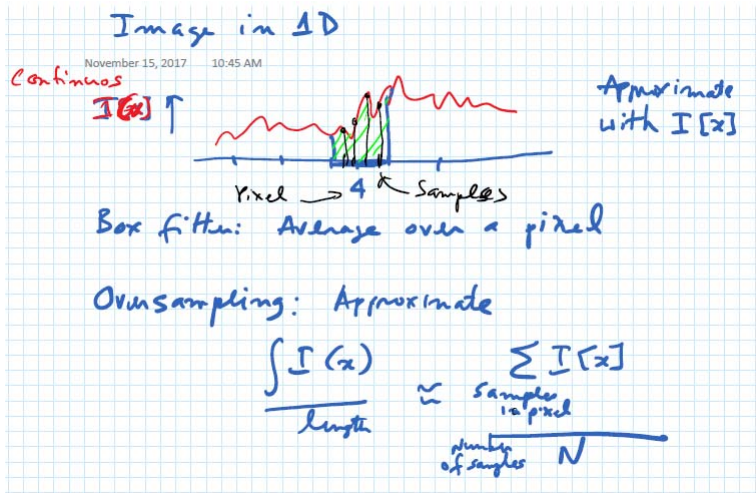 Image in 1D
November 15, 2017 10:45 AM
Continuos
I(x) ↑
Approximate
with I[x]
Pixel → 4 Samples
Box filter: Average over a pixel
Oversampling: Approximate
∫ I(x) ≈ Σ I[x]
length
samples
in pixel
Number
of samples N